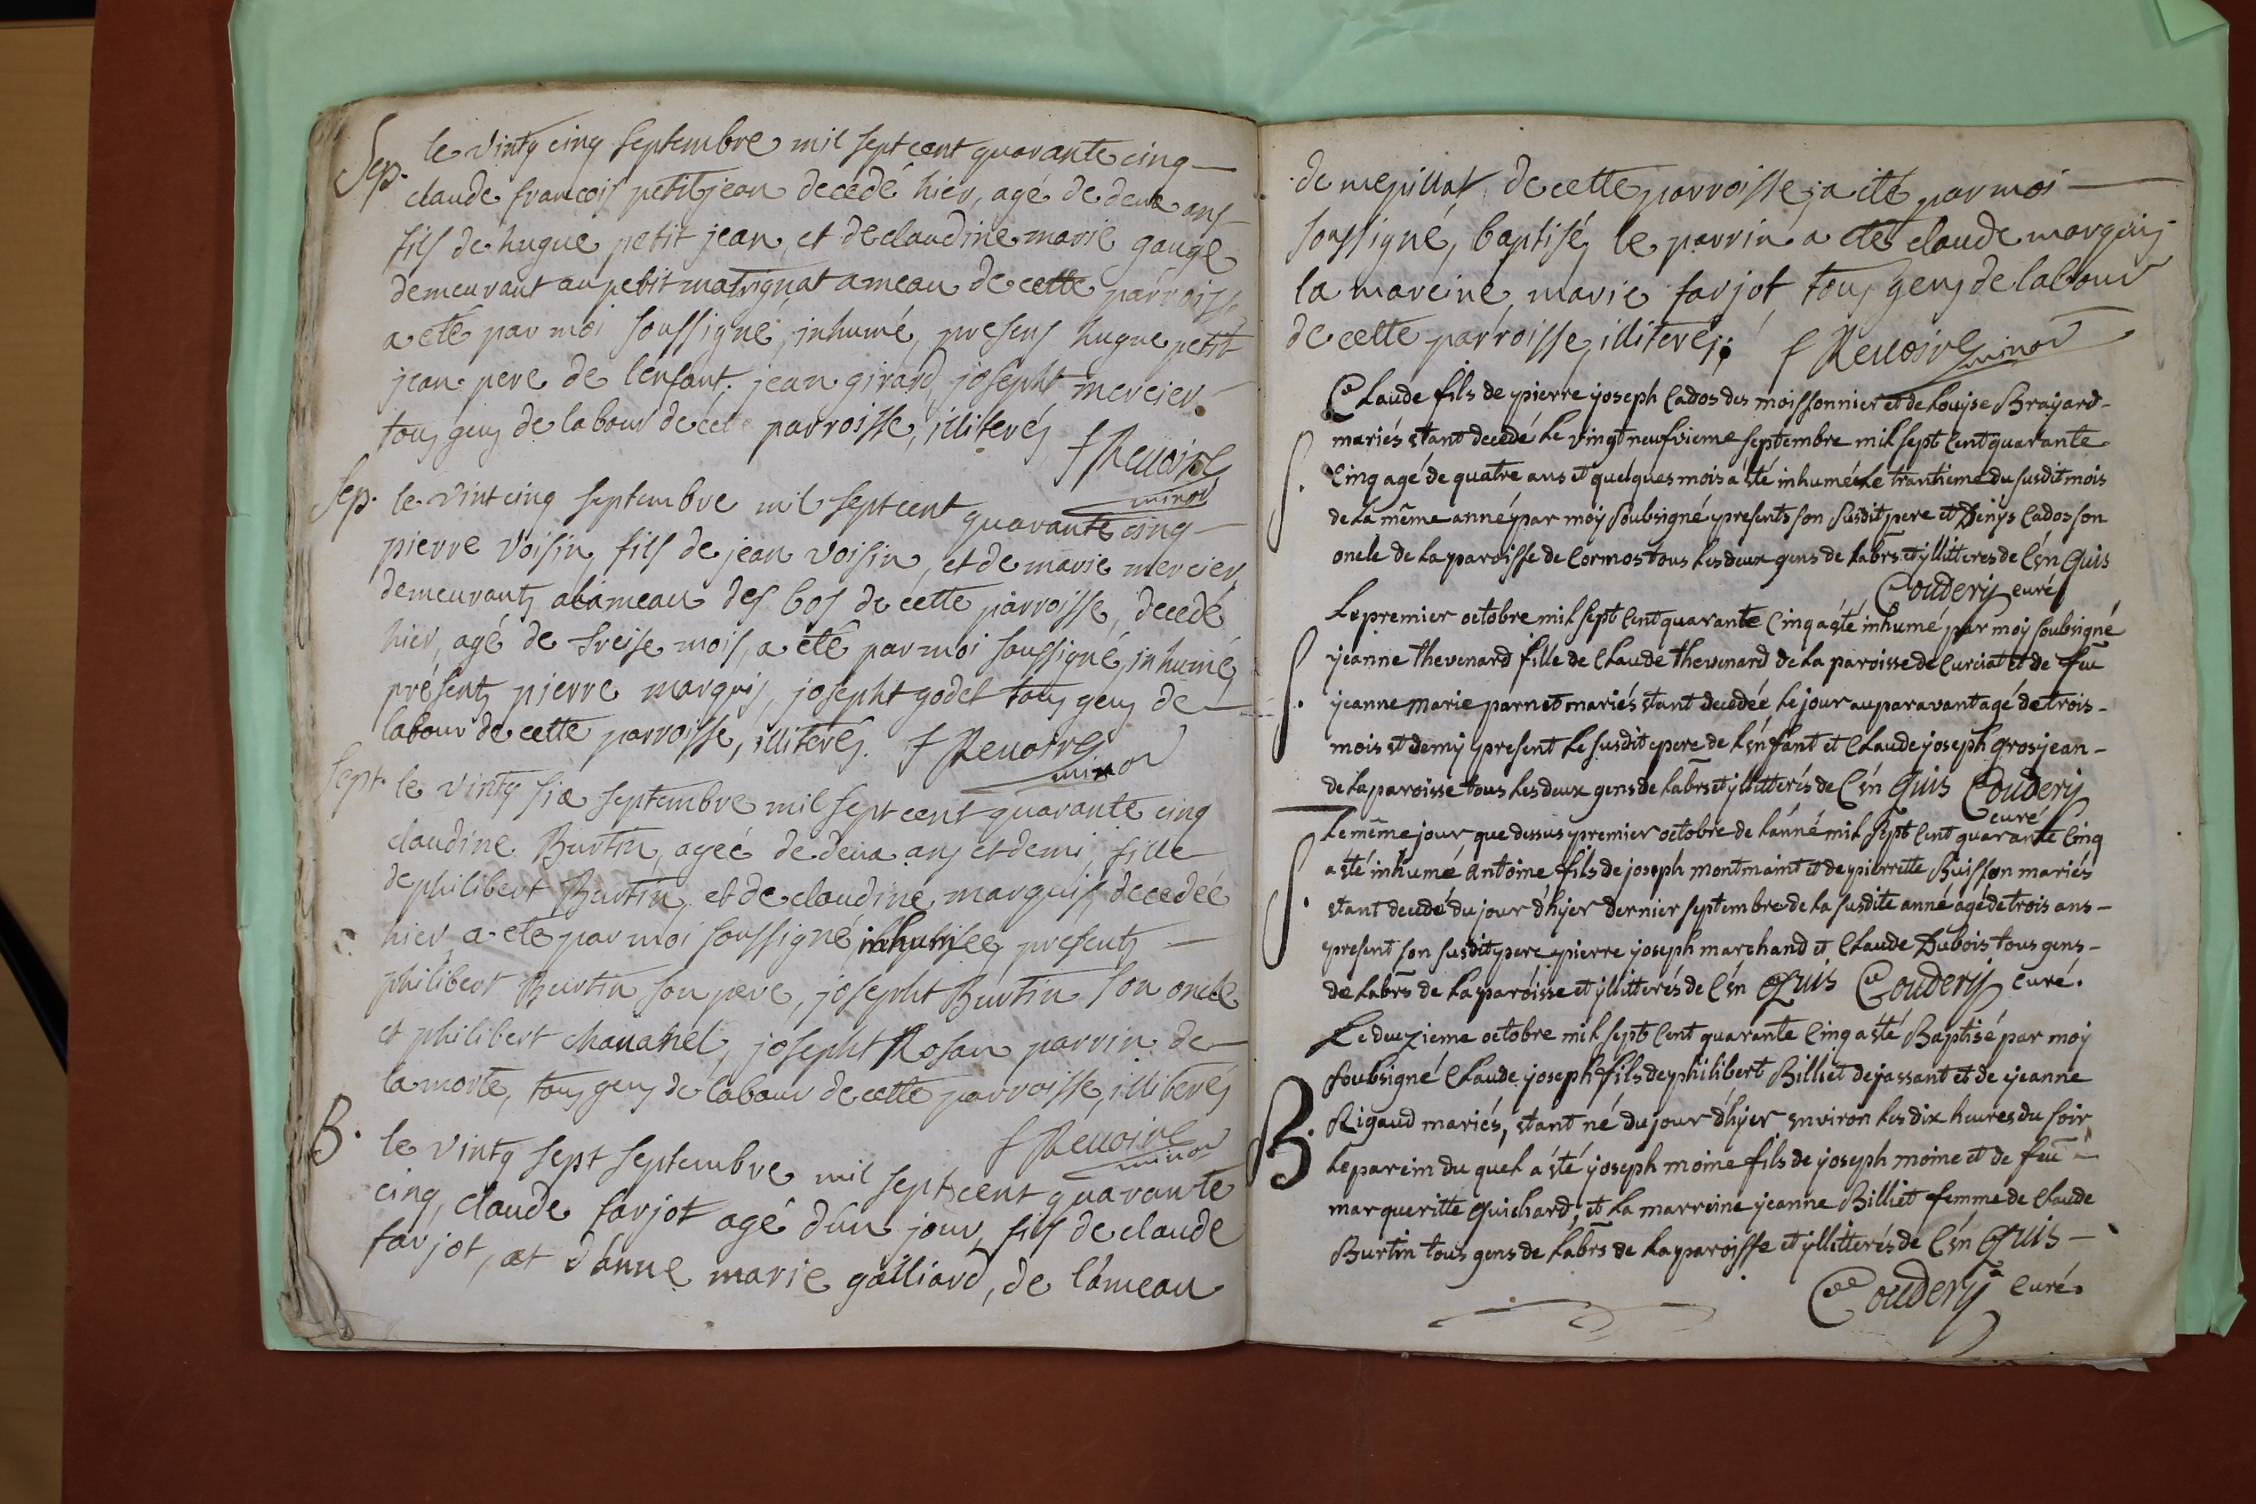 Sep. le vintg cinq septembre mil sept cent quarante cinq
claude francois petitjean decedé hier, agé de deux ans
fils de hugue petit jean, et de claudine marie gauge
demeurant au petit matrignat ameau de cette parroisse
a eté par moi soussigné, inhumé, presens hugue petit
jean pere de l'enfant, jean girard, josepht mercier
tous gens de labour de cette parroisse, illiterés
f Renoire
minor
Sep. le vint cinq septembre mil sept cent quarante cinq
pierre voisin, fils de jean voisin, et de marie mercier,
demeurants alameau des bos de cette parroisse, decedé
hier, agé de treise mois, a eté par moi soussigné, inhumé,
présents pierre marquis, josepht godet tous gens de
labour de cette parroisse, illiterés. f Renoire
minor
Sept. le vintg six septembre mil sept cent quarante cinq
claudine Burtin, ageé de deux ans et demi, fille
de philibert Burtin, et de claudine marquis, decedeé
hier, a eté par moi soussigné, inhumee, presents
philibert Burtin son pere, josepht Burtin son oncle
et philibert chavanel, josepht Rosan parrin de
la morte, tous gens de labour de cette parroisse, illiterés
f Renoire
minor
B. le vintg sept septembre mil sept cent quarante
cinq, claude farjot agé d'un jour, fils de claude
farjot, et d'anne marie galliard, de l'ameau
de mepillat de cette parroisse, a eté par moi
soussigné, baptisé, le parrin a eté claude marquis
la mareine, marie farjot, tous gens de labour
de cette parroisse, illiterés; f Renoire
minor
Claude fils de pierre joseph Cados des moissonnier et de Louyse Brayard
mariés etant decedé le vingt neufvieme septembre mil sept Cent quarante
S. Cinq agé de quatre ans et quelques mois a été inhumé le trantieme du susdit mois
de la même anné par moy soubsigné presents son susdit pere et Denys Cados son
oncle de la paroisse de Cormos tous les deux gens de labrs et yllitteres de C'én Quis
Coudery curé
Le premier octobre mil sept Cent quarante Cinq a été inhumé par moy soubsigné
S. yeanne thevenard fille de Claude thevenard de la paroisse de Curciat et de feu
yeanne marie parnet mariés etant decedée le jour auparavant agé de trois
mois et demy present le susdit pere de l'énfant et Claude joseph grosjean
de la paroisse tous les deux gens de labrs et yllitterés de C'én Quis Coudery
curé
Le même jour que dessus premier octobre de l'anné mil sept Cent quarante Cinq
a été inhumé Antoine fils de joseph montmaint et de pierrette Buisson mariés
S. etant decedé du jour d'hyer dernier septembre de la susdite anné agé de trois ans
present son susdit pere pierre joseph marchand et Claude Dubois tous gens
de labrs de la paroisse et yllitterés de C'én Quis Coudery curé.
Le deuzieme octobre mil sept Cent quarante Cinq a été Baptisé par moy
soubsigné Claude joseph fils de philibert Billiet de jassant et de yeanne
B. Rigaud mariés, etant né du jour d'hyer environ les dix heures du soir,
le parein du quel a été joseph moine fils de joseph moine et de feu
marguerite guichard, et la marreine yeanne Billiet femme de Claude
Burtin tous gens de labrs de la paroisse et yllitterés de C'én Quis
Coudery curé.